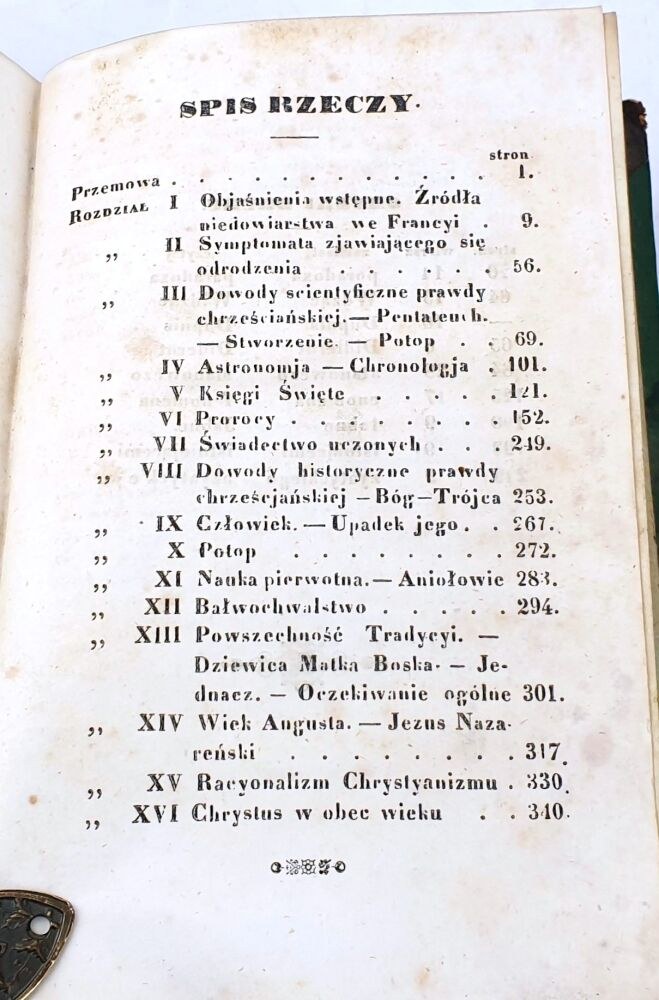 SPIS RZECZY.
stron
Przemowa . . . . . . . . . . . 1.
ROZDZIAŁ I Objaśnienia wstępne. Źródła
niedowiarstwa we Francyi . 9.
„ II Symptomata zjawiającego się
odrodzenia . . . . . . 56.
„ III Dowody scientyficzne prawdy
chrześciańskiej. — Pentateuch.
— Stworzenie. — Potop . . 69.
„ IV Astronomja — Chronologja . 101.
„ V Księgi Święte . . . . . 121.
„ VI Prorocy . . . . . . . . 152.
„ VII Świadectwo uczonych . . . 249.
„ VIII Dowody historyczne prawdy
chrześcjańskiej — Bóg — Trójca 253.
„ IX Człowiek. — Upadek jego . . 267.
„ X Potop . . . . . . . 272.
„ XI Nauka pierwotna. — Aniołowie 283.
„ XII Bałwochwalstwo . . . . . 294.
„ XIII Powszechność Tradycyi. —
Dziewica Matka Boska. — Je-
dnacz. — Oczekiwanie ogólne 301.
„ XIV Wiek Augusta. — Jezus Naza-
reński . . . . . . . . 317.
„ XV Racyonalizm Chrystyanizmu . 330.
„ XVI Chrystus w obec wieku . . 340.